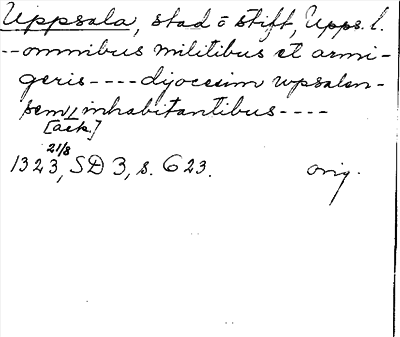 Uppsala, stad o stift, Upps. l.
-- omnibus militibus et armi-
geris ---- dyocesim vpsalen-
sem inhabitantibus ----
[ack.]
21/8
1323, SD 3, s. 623. orig.